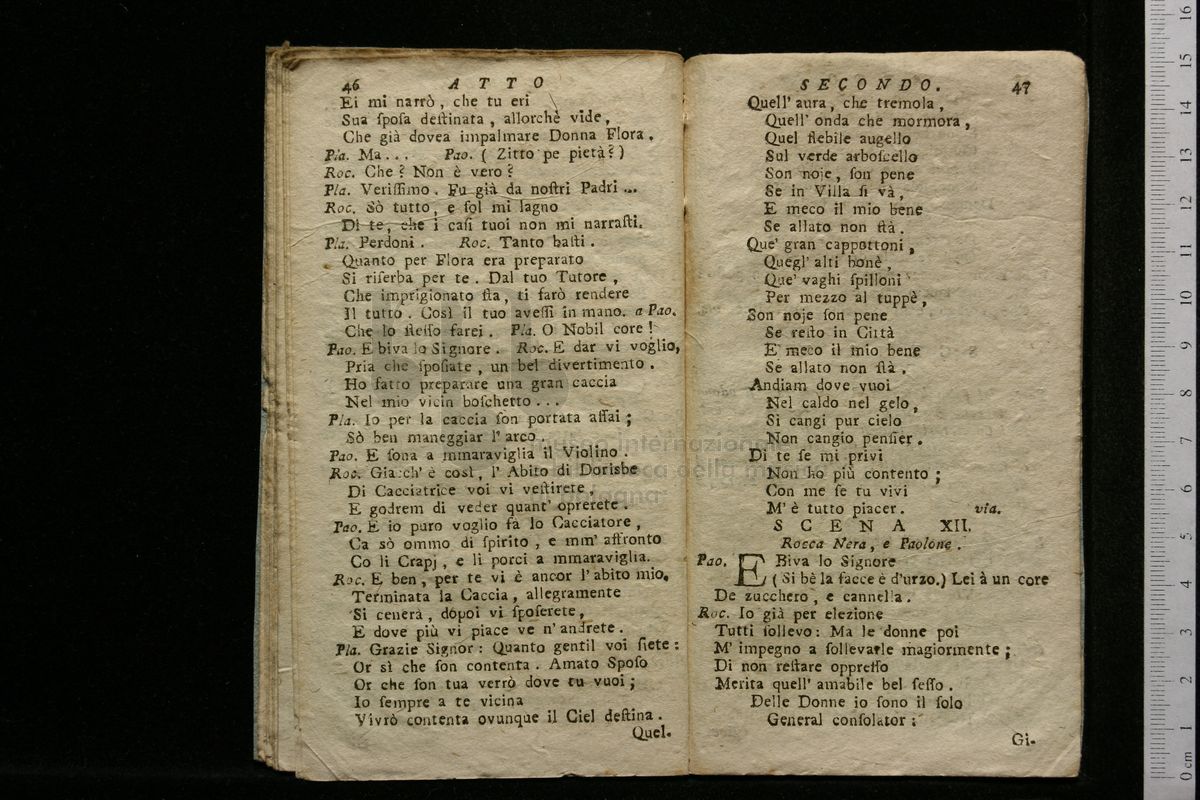 46 ATTO
Ei mi narrò, che tu eri
Sua ſpoſa deſtinata, allorchè vide,
Che già dovea impalmare Donna Flora.
Pla. Ma... Pao. ( Zitto pe pietà? )
Roc. Che? Non è vero?
Pla. Veriſſimo. Fu già da noſtri Padri ...
Roc. Sò tutto, e ſol mi lagno
Di te, che i caſi tuoi non mi narraſti.
Pla. Perdoni. Roc. Tanto baſti.
Quanto per Flora era preparato
Si riſerba per te. Dal tuo Tutore,
Che imprigionato ſta, ti farò rendere
Il tutto. Così il tuo aveſſi in mano. a Pao.
Che lo ſteſſo farei. Pla. O Nobil core!
Pao. E biva lo Signore. Roc. E dar vi voglio,
Pria che ſpoſiate, un bel divertimento.
Ho fatto preparare una gran caccia
Nel mio vicin boſchetto ...
Pla. Io per la caccia ſon portata aſſai;
Sò ben maneggiar l'arco.
Pao. E ſona a mmaraviglia il Violino.
Roc. Giacch' è così, l' Abito di Dorisbe
Di Cacciatrice voi vi veſtirete,
E godrem di veder quant' oprerete.
Pao. E io puro voglio fà lo Cacciatore,
Ca sò ommo di ſpirito, e mm' affronto
Co li Crapj, e li porci a mmaraviglia.
Roc. E ben, per te vi è ancor l'abito mio.
Terminata la Caccia, allegramente
Si cenerà, dopoi vi ſpoſerete,
E dove più vi piace ve n' andrete.
Pla. Grazie Signor: Quanto gentil voi ſiete:
Or sì che ſon contenta. Amato Spoſo
Or che ſon tua verrò dove tu vuoi;
Io ſempre a te vicina
Vivrò contenta ovunque il Ciel deſtina.
Quel-
SECONDO. 47
Quell' aura, che tremola,
Quell' onda che mormora,
Quel flebile augello
Sul verde arboſcello
Son noje, ſon pene
Se in Villa ſi và,
E meco il mio bene
Se allato non ſtà.
Que' gran cappottoni,
Quegl' alti bonè,
Que' vaghi ſpilloni
Per mezzo al tuppè,
Son noje ſon pene
Se reſto in Città
E meco il mio bene
Se allato non ſtà.
Andiam dove vuoi
Nel caldo nel gelo,
Si cangi pur cielo
Non cangio penſier.
Di te ſe mi privi
Non ho più contento;
Con me ſe tu vivi
M' è tutto piacer. via.
SCENA XII.
Rocca Nera, e Paolone.
Pao. E Biva lo Signore
( Si bè la facce è d'urzo.) Lei à un core
De zucchero, e cannella.
Roc. Io già per elezione
Tutti ſollevo: Ma le donne poi
M' impegno a ſollevarle magiormente;
Di non reſtare oppreſſo
Merita quell' amabile bel ſeſſo.
Delle Donne io ſono il ſolo
General conſolator:
Gi-
museo internazionale
e biblioteca della musica
di bologna
0 cm 1 2 3 4 5 6 7 8 9 10 11 12 13 14 15 16